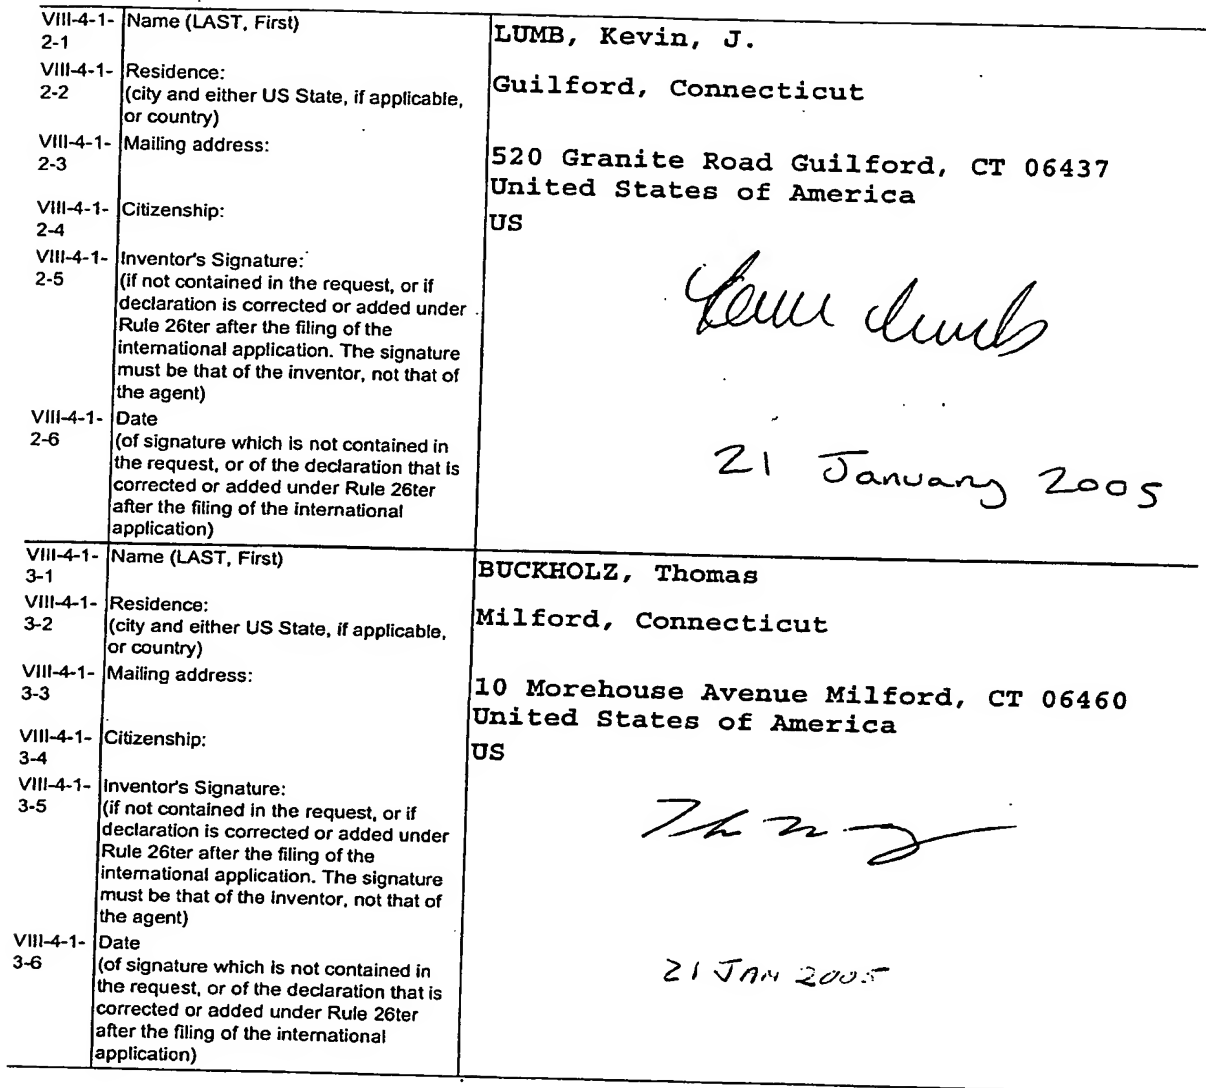 VIII-4-1-2-1 Name (LAST, First) LUMB, Kevin, J.
VIII-4-1-2-2 Residence: Guilford, Connecticut
(city and either US State, if applicable,
or country)
VIII-4-1-2-3 Mailing address: 520 Granite Road Guilford, CT 06437
United States of America
VIII-4-1-2-4 Citizenship: US
VIII-4-1-2-5 Inventor's Signature:
(if not contained in the request, or if
declaration is corrected or added under
Rule 26ter after the filing of the
international application. The signature
must be that of the inventor, not that of
the agent)
Kevin Lumb
VIII-4-1-2-6 Date
(of signature which is not contained in
the request, or of the declaration that is
corrected or added under Rule 26ter
after the filing of the international
application)
21 January 2005
VIII-4-1-3-1 Name (LAST, First) BUCKHOLZ, Thomas
VIII-4-1-3-2 Residence: Milford, Connecticut
(city and either US State, if applicable,
or country)
VIII-4-1-3-3 Mailing address: 10 Morehouse Avenue Milford, CT 06460
United States of America
VIII-4-1-3-4 Citizenship: US
VIII-4-1-3-5 Inventor's Signature:
(if not contained in the request, or if
declaration is corrected or added under
Rule 26ter after the filing of the
international application. The signature
must be that of the inventor, not that of
the agent)
VIII-4-1-3-6 Date
(of signature which is not contained in
the request, or of the declaration that is
corrected or added under Rule 26ter
after the filing of the international
application)
21 JAN 2005